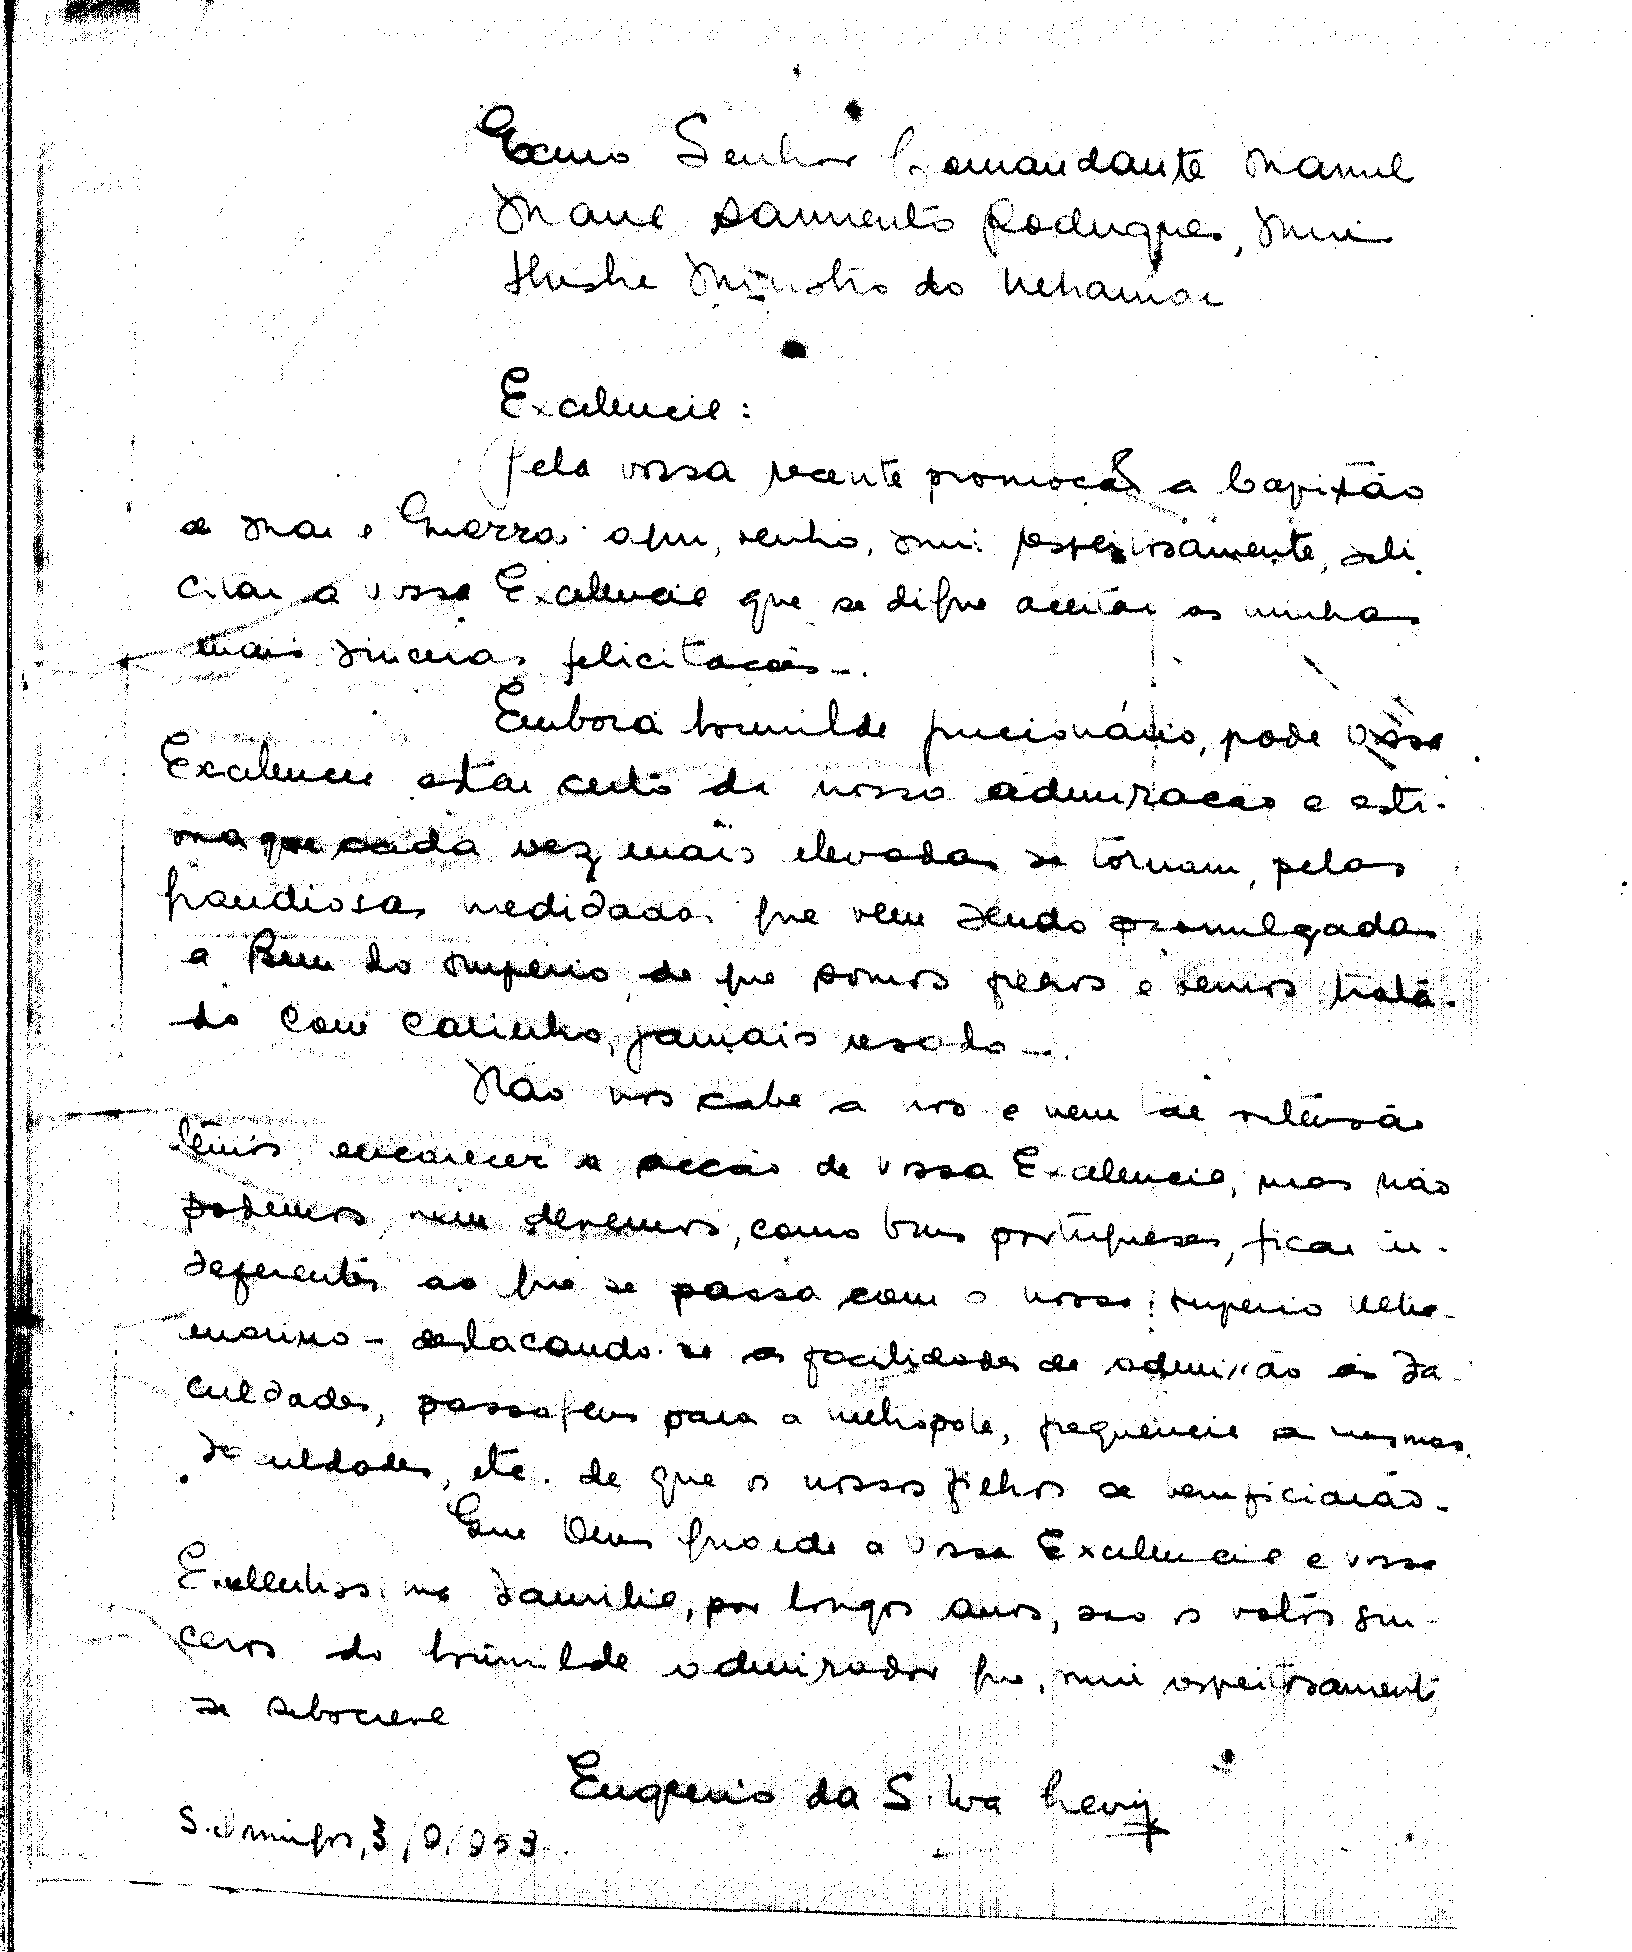 Exmo Senhor Comandante Manuel
Maria Sarmento Rodrigues, Mui
Ilustre Ministro do Ultramar
Excelencia:
Pela vossa recente promoção a Capitão
de Mar e Guerra venho, mui respeitosamente, soli-
citar a vossa Excelencia que se digne aceitar as minhas
mais sinceras felicitações-.
Embora humilde funcionário, pode vossa
Excelencia estar certo da nossa admiração e esti-
ma que cada vez mais elevadas se tornam, pelas
grandiosas medidadas que vem sendo promulgadas
a Bem do Imperio, de que somos filhos e temos trata-
do com carinho, jamais usado-.
Não nos cabe a nós e nem de
encarecer a acção de vossa Excelencia, mas não
podemos, nem devemos, como bons portugueses, ficar in-
deferentes ao que se passa com o nosso Imperio Ultra-
marino - destacando-se as facilidades de admissão ás Fa-
culdades, passagens para a metropole, frequencia a mesmas
Faculdades, etc. de que os nossos filhos se beneficiarão-
Que Deus guarde a Vossa Excelencia e vossa
Excelentissima Familia, por longos anos, são os votos sin-
ceros do humilde admirador que, mui respeitosamente
se subscreve
Eugenio da Silva
S. Domingos, 3